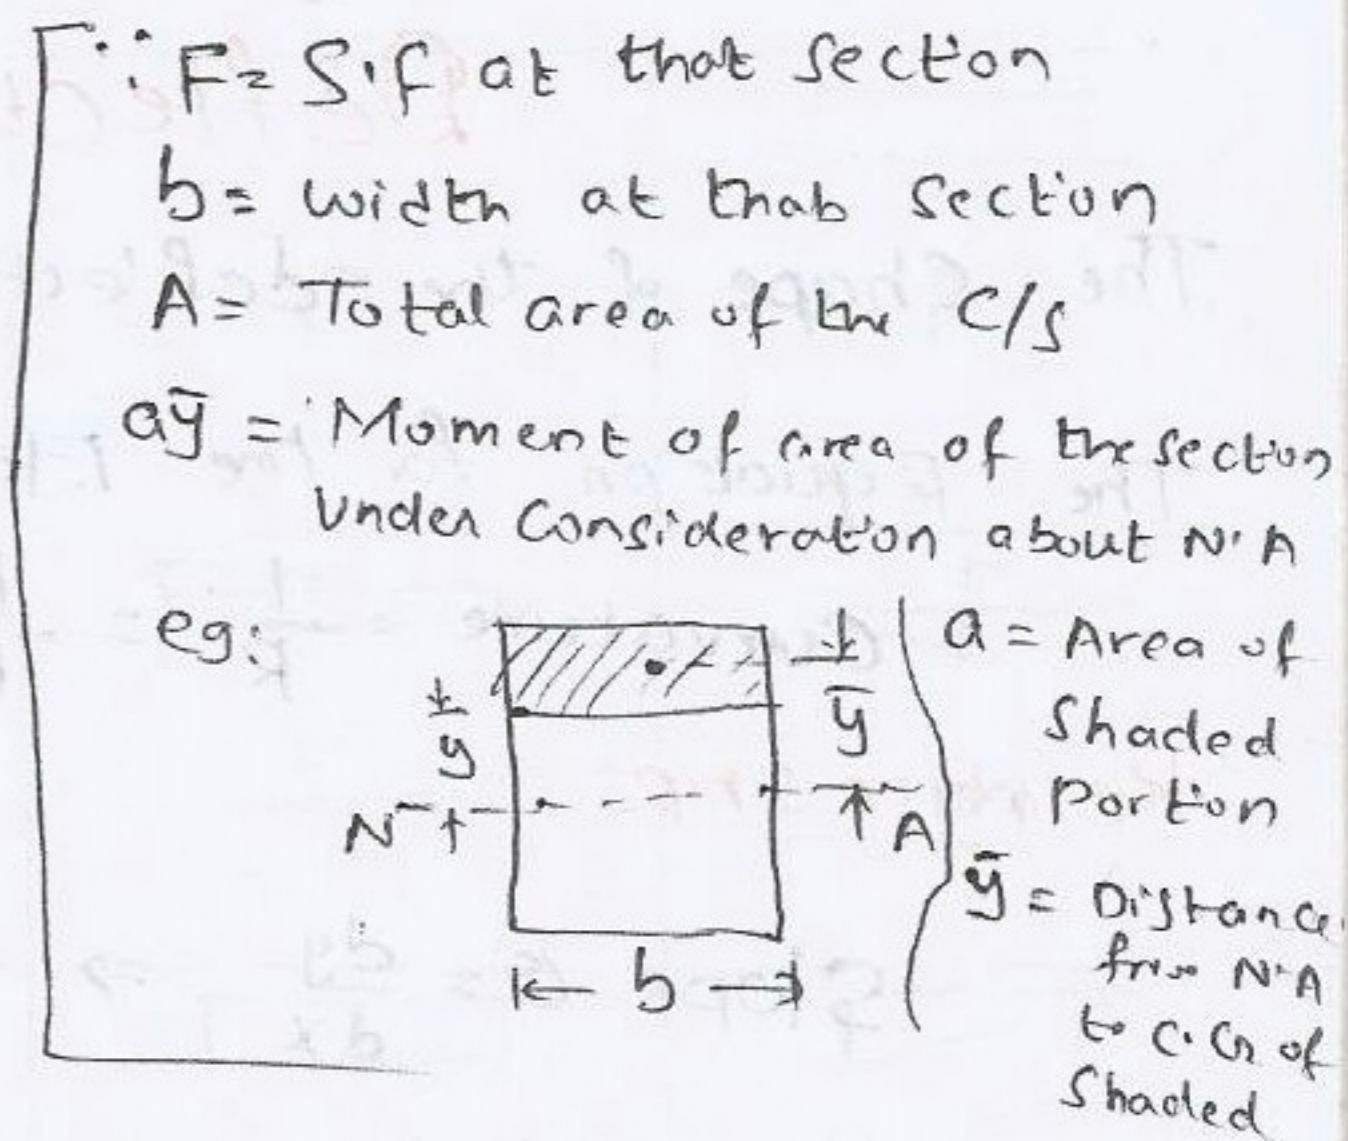 ∵ F = S.f at that section
b = width at that section
A = Total area of the C/s
aȳ = Moment of area of the section
Under Consideration about N.A
eg:
y
N
ȳ
A
b
a = Area of
Shaded
Portion
ȳ = Distance
from N.A
to C.G of
Shaded